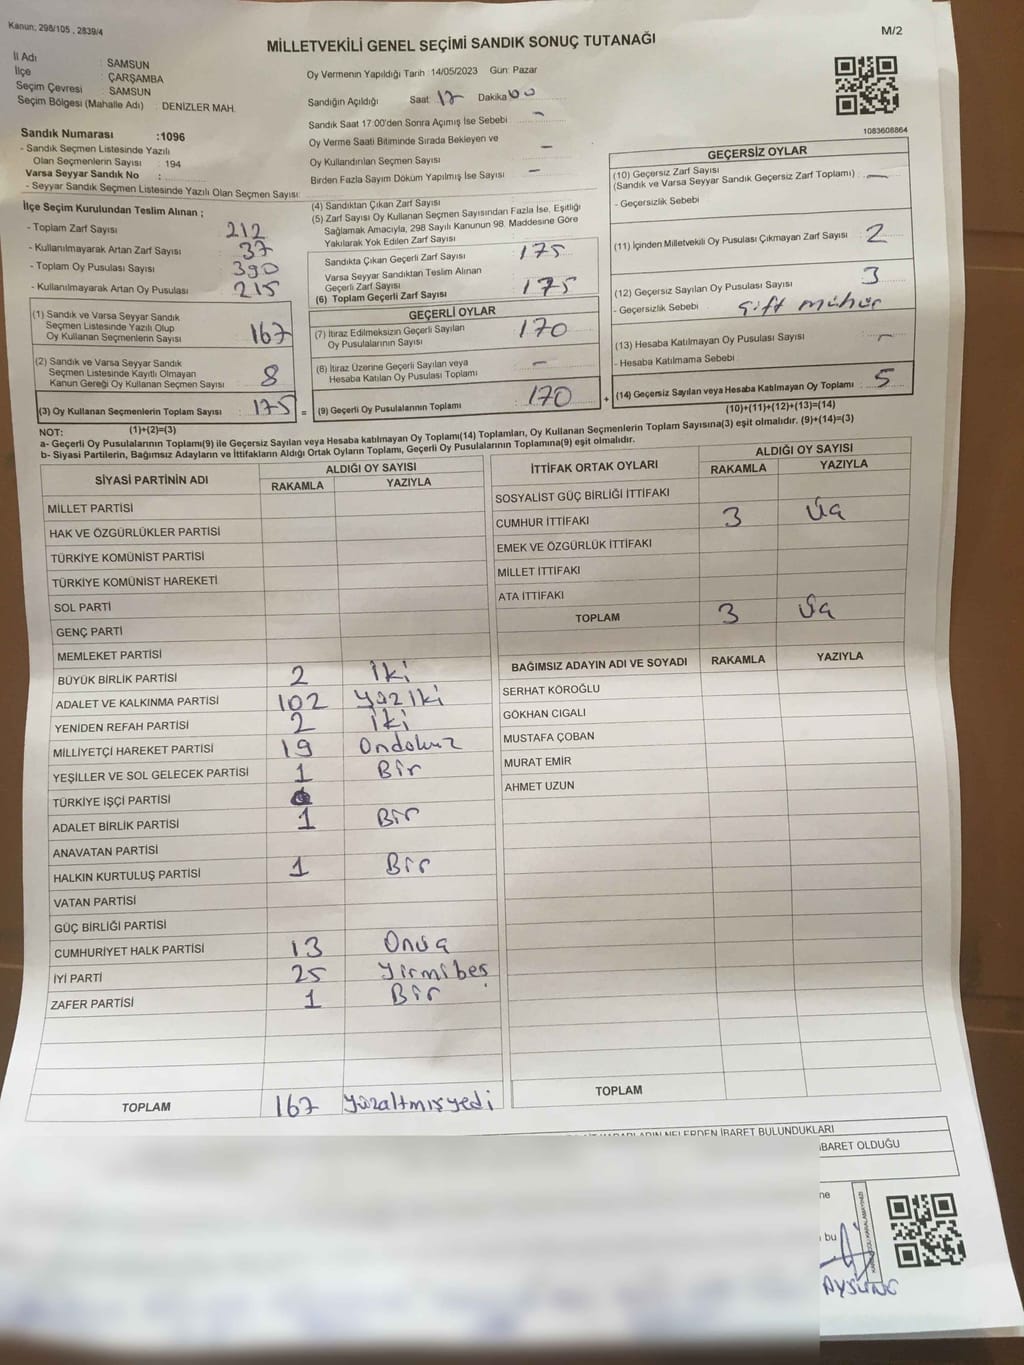 Kanun; 298/105 , 2839/4
MİLLETVEKİLİ GENEL SEÇİMİ SANDIK SONUÇ TUTANAĞI
M/2
İl Adı : SAMSUN
İlçe : ÇARŞAMBA
Seçim Çevresi : SAMSUN
Seçim Bölgesi (Mahalle Adı) : DENİZLER MAH.
Sandık Numarası :1096
- Sandık Seçmen Listesinde Yazılı
Olan Seçmenlerin Sayısı : 194
Varsa Seyyar Sandık No :
- Seyyar Sandık Seçmen Listesinde Yazılı Olan Seçmen Sayısı:
Oy Vermenin Yapıldığı Tarih :14/05/2023 Gün: Pazar
Sandığın Açıldığı Saat 17 Dakika 00
Sandık Saat 17:00'den Sonra Açımış İse Sebebi -
Oy Verme Saati Bitiminde Sırada Bekleyen ve
Oy Kullandırılan Seçmen Sayısı -
Birden Fazla Sayım Döküm Yapılmış İse Sayısı -
1083608864
İlçe Seçim Kurulundan Teslim Alınan ;
- Toplam Zarf Sayısı : 212
- Kullanılmayarak Artan Zarf Sayısı : 37
- Toplam Oy Pusulası Sayısı : 390
- Kullanılmayarak Artan Oy Pusulası : 215
(1) Sandık ve Varsa Seyyar Sandık
Seçmen Listesinde Yazılı Olup
Oy Kullanan Seçmenlerin Sayısı : 167
(2) Sandık ve Varsa Seyyar Sandık
Seçmen Listesinde Kayıtlı Olmayan
Kanun Gereği Oy Kullanan Seçmen Sayısı : 8
(3) Oy Kullanan Seçmenlerin Toplam Sayısı : 175 =
(1)+(2)=(3)
(4) Sandıktan Çıkan Zarf Sayısı
(5) Zarf Sayısı Oy Kullanan Seçmen Sayısından Fazla İse, Eşitliği
Sağlamak Amacıyla, 298 Sayılı Kanunun 98. Maddesine Göre
Yakılarak Yok Edilen Zarf Sayısı
Sandıkta Çıkan Geçerli Zarf Sayısı : 175
Varsa Seyyar Sandıktan Teslim Alınan
Geçerli Zarf Sayısı
(6) Toplam Geçerli Zarf Sayısı : 175
GEÇERLİ OYLAR
(7) İtiraz Edilmeksizin Geçerli Sayılan
Oy Pusulalarının Sayısı : 170
(8) İtiraz Üzerine Geçerli Sayılan veya
Hesaba Katılan Oy Pusulası Toplamı : -
(9) Geçerli Oy Pusulalarının Toplamı : 170 +
GEÇERSİZ OYLAR
(10) Geçersiz Zarf Sayısı
(Sandık ve Varsa Seyyar Sandık Geçersiz Zarf Toplamı) : -
- Geçersizlik Sebebi
(11) İçinden Milletvekili Oy Pusulası Çıkmayan Zarf Sayısı : 2
(12) Geçersiz Sayılan Oy Pusulası Sayısı : 3
- Geçersizlik Sebebi : Çift mühür
(13) Hesaba Katılmayan Oy Pusula Sayısı : -
- Hesaba Katılmama Sebebi
(14) Geçersiz Sayılan veya Hesaba Katılmayan Oy Toplamı : 5
(10)+(11)+(12)+(13)=(14)
NOT:
a- Geçerli Oy Pusulalarının Toplamı(9) ile Geçersiz Sayılan veya Hesaba katılmayan Oy Toplamı(14) Toplamları, Oy Kullanan Seçmenlerin Toplam Sayısına(3) eşit olmalıdır. (9)+(14)=(3)
b- Siyasi Partilerin, Bağımsız Adayların ve İttifakların Aldığı Ortak Oyların Toplamı, Geçerli Oy Pusulalarının Toplamına(9) eşit olmalıdır.
SİYASİ PARTİNİN ADI ALDIĞI OY SAYISI
RAKAMLA YAZIYLA
MİLLET PARTİSİ
HAK VE ÖZGÜRLÜKLER PARTİSİ
TÜRKİYE KOMÜNİST PARTİSİ
TÜRKİYE KOMÜNİST HAREKETİ
SOL PARTİ
GENÇ PARTİ
MEMLEKET PARTİSİ
BÜYÜK BİRLİK PARTİSİ 2 İki
ADALET VE KALKINMA PARTİSİ 102 Yüziki
YENİDEN REFAH PARTİSİ 2 iki
MİLLİYETÇİ HAREKET PARTİSİ 19 Ondokuz
YEŞİLLER VE SOL GELECEK PARTİSİ 1 Bir
TÜRKİYE İŞÇİ PARTİSİ
ADALET BİRLİK PARTİSİ 1 Bir
ANAVATAN PARTİSİ
HALKIN KURTULUŞ PARTİSİ 1 Bir
VATAN PARTİSİ
GÜÇ BİRLİĞİ PARTİSİ
CUMHURİYET HALK PARTİSİ 13 Onüç
İYİ PARTİ 25 Yirmibeş
ZAFER PARTİSİ 1 Bir
TOPLAM 167 Yüzaltmışyedi
İTTİFAK ORTAK OYLARI ALDIĞI OY SAYISI
RAKAMLA YAZIYLA
SOSYALİST GÜÇ BİRLİĞİ İTTİFAKI
CUMHUR İTTİFAKI 3 Üç
EMEK VE ÖZGÜRLÜK İTTİFAKI
MİLLET İTTİFAKI
ATA İTTİFAKI
TOPLAM 3 Üç
BAĞIMSIZ ADAYIN ADI VE SOYADI RAKAMLA YAZIYLA
SERHAT KÖROĞLU
GÖKHAN CIGALI
MUSTAFA ÇOBAN
MURAT EMİR
AHMET UZUN
TOPLAM
NELERDEN İBARET BULUNDUKLARI
İBARET OLDUĞU
ne
bu